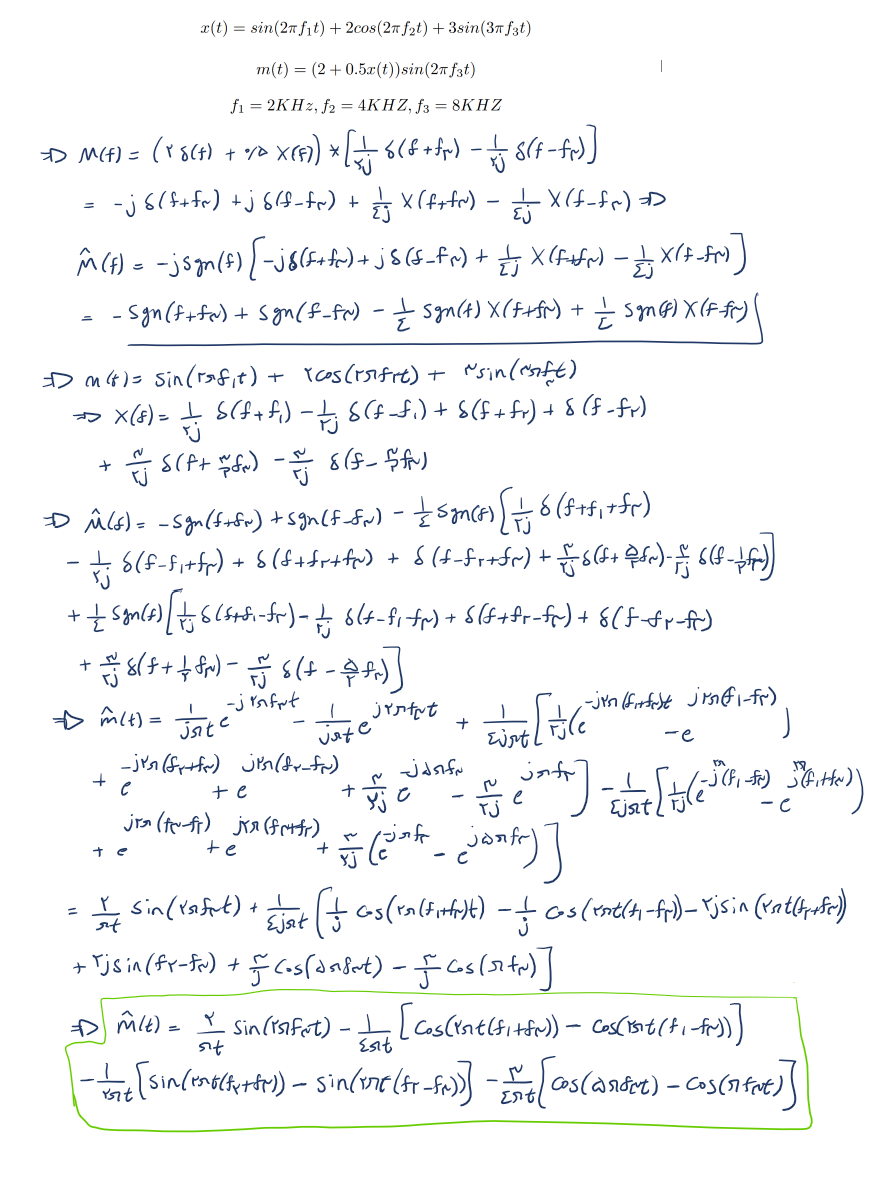 x(t) = sin(2πf₁t) + 2cos(2πf₂t) + 3sin(3πf₃t)
m(t) = (2 + 0.5x(t))sin(2πf₃t)
f₁ = 2KHz, f₂ = 4KHZ, f₃ = 8KHZ
⇒ M(f) = (۲ δ(f) + ۰/۵ X(f)) * [۱/۲j δ(f+f۳) − ۱/۲j δ(f−f۳)]
= −j δ(f+f۳) + j δ(f−f۳) + ۱/۴j X(f+f۳) − ۱/۴j X(f−f۳) ⇒
M̂(f) = −j sgn(f) [−jδ(f+f۳) + jδ(f−f۳) + ۱/۴j X(f+f۳) − ۱/۴j X(f−f۳)]
= − sgn(f+f۳) + sgn(f−f۳) − ۱/۴ sgn(f) X(f+f۳) + ۱/۴ sgn(f) X(f−f۳)
⇒ m(t) = sin(۲πf۱t) + ۲cos(۲πf۲t) + ۳sin(۳πf۳t)
⇒ X(f) = ۱/۲j δ(f+f۱) − ۱/۲j δ(f−f۱) + δ(f+f۲) + δ(f−f۲)
+ ۳/۲j δ(f+ ۳/۲ f۳) − ۳/۲j δ(f− ۳/۲ f۳)
⇒ M̂(f) = −sgn(f+f۳) + sgn(f−f۳) − ۱/۴ sgn(f) [۱/۲j δ(f+f۱+f۳)
− ۱/۲j δ(f−f۱+f۳) + δ(f+f۲+f۳) + δ(f−f۲+f۳) + ۳/۲j δ(f+ ۵/۲ f۳) − ۳/۲j δ(f− ۱/۲ f۳)]
+ ۱/۴ sgn(f) [۱/۲j δ(f+f۱−f۳) − ۱/۲j δ(f−f۱−f۳) + δ(f+f۲−f۳) + δ(f−f۲−f۳)
+ ۳/۲j δ(f+ ۱/۲ f۳) − ۳/۲j δ(f − ۵/۲ f۳)]
⇒ m̂(t) = ۱/jπt e^(−j۲πf۳t) − ۱/jπt e^(j۲πf۳t) + ۱/۴jπt [۱/۲j (e^(−j۲π(f۱+f۳)t) − e^(j۲π(f۱−f۳))
+ e^(−j۲π(f۲+f۳)) + e^(j۲π(f۲−f۳)) + ۳/۲j e^(−j۵πf۳) − ۳/۲j e^(jπf۳)] − ۱/۴jπt [۱/۲j (e^(−j(f۱−f۳)) − e^(j(f۱+f۳)))
+ e^(j۲π(f۳−f۲)) + e^(j۲π(f۳+f۲)) + ۳/۲j (e^(−jπf۳) − e^(j۵πf۳))]
= ۲/πt sin(۲πf۳t) + ۱/۴jπt [۱/j cos(۲π(f۱+f۳)t) − ۱/j cos(۲πt(f۱−f۳)) − ۲j sin(۲πt(f۲+f۳))
+ ۲j sin(f۲−f۳) + ۳/j cos(۵πf۳t) − ۳/j cos(πf۳)]
⇒ m̂(t) = ۲/πt sin(۲πf۳t) − ۱/۴πt [cos(۲πt(f۱+f۳)) − cos(۲πt(f۱−f۳))]
− ۱/۲πt [sin(۲πt(f۲+f۳)) − sin(۲πt(f۲−f۳))] − ۳/۴πt [cos(۵πf۳t) − cos(πf۳t)]